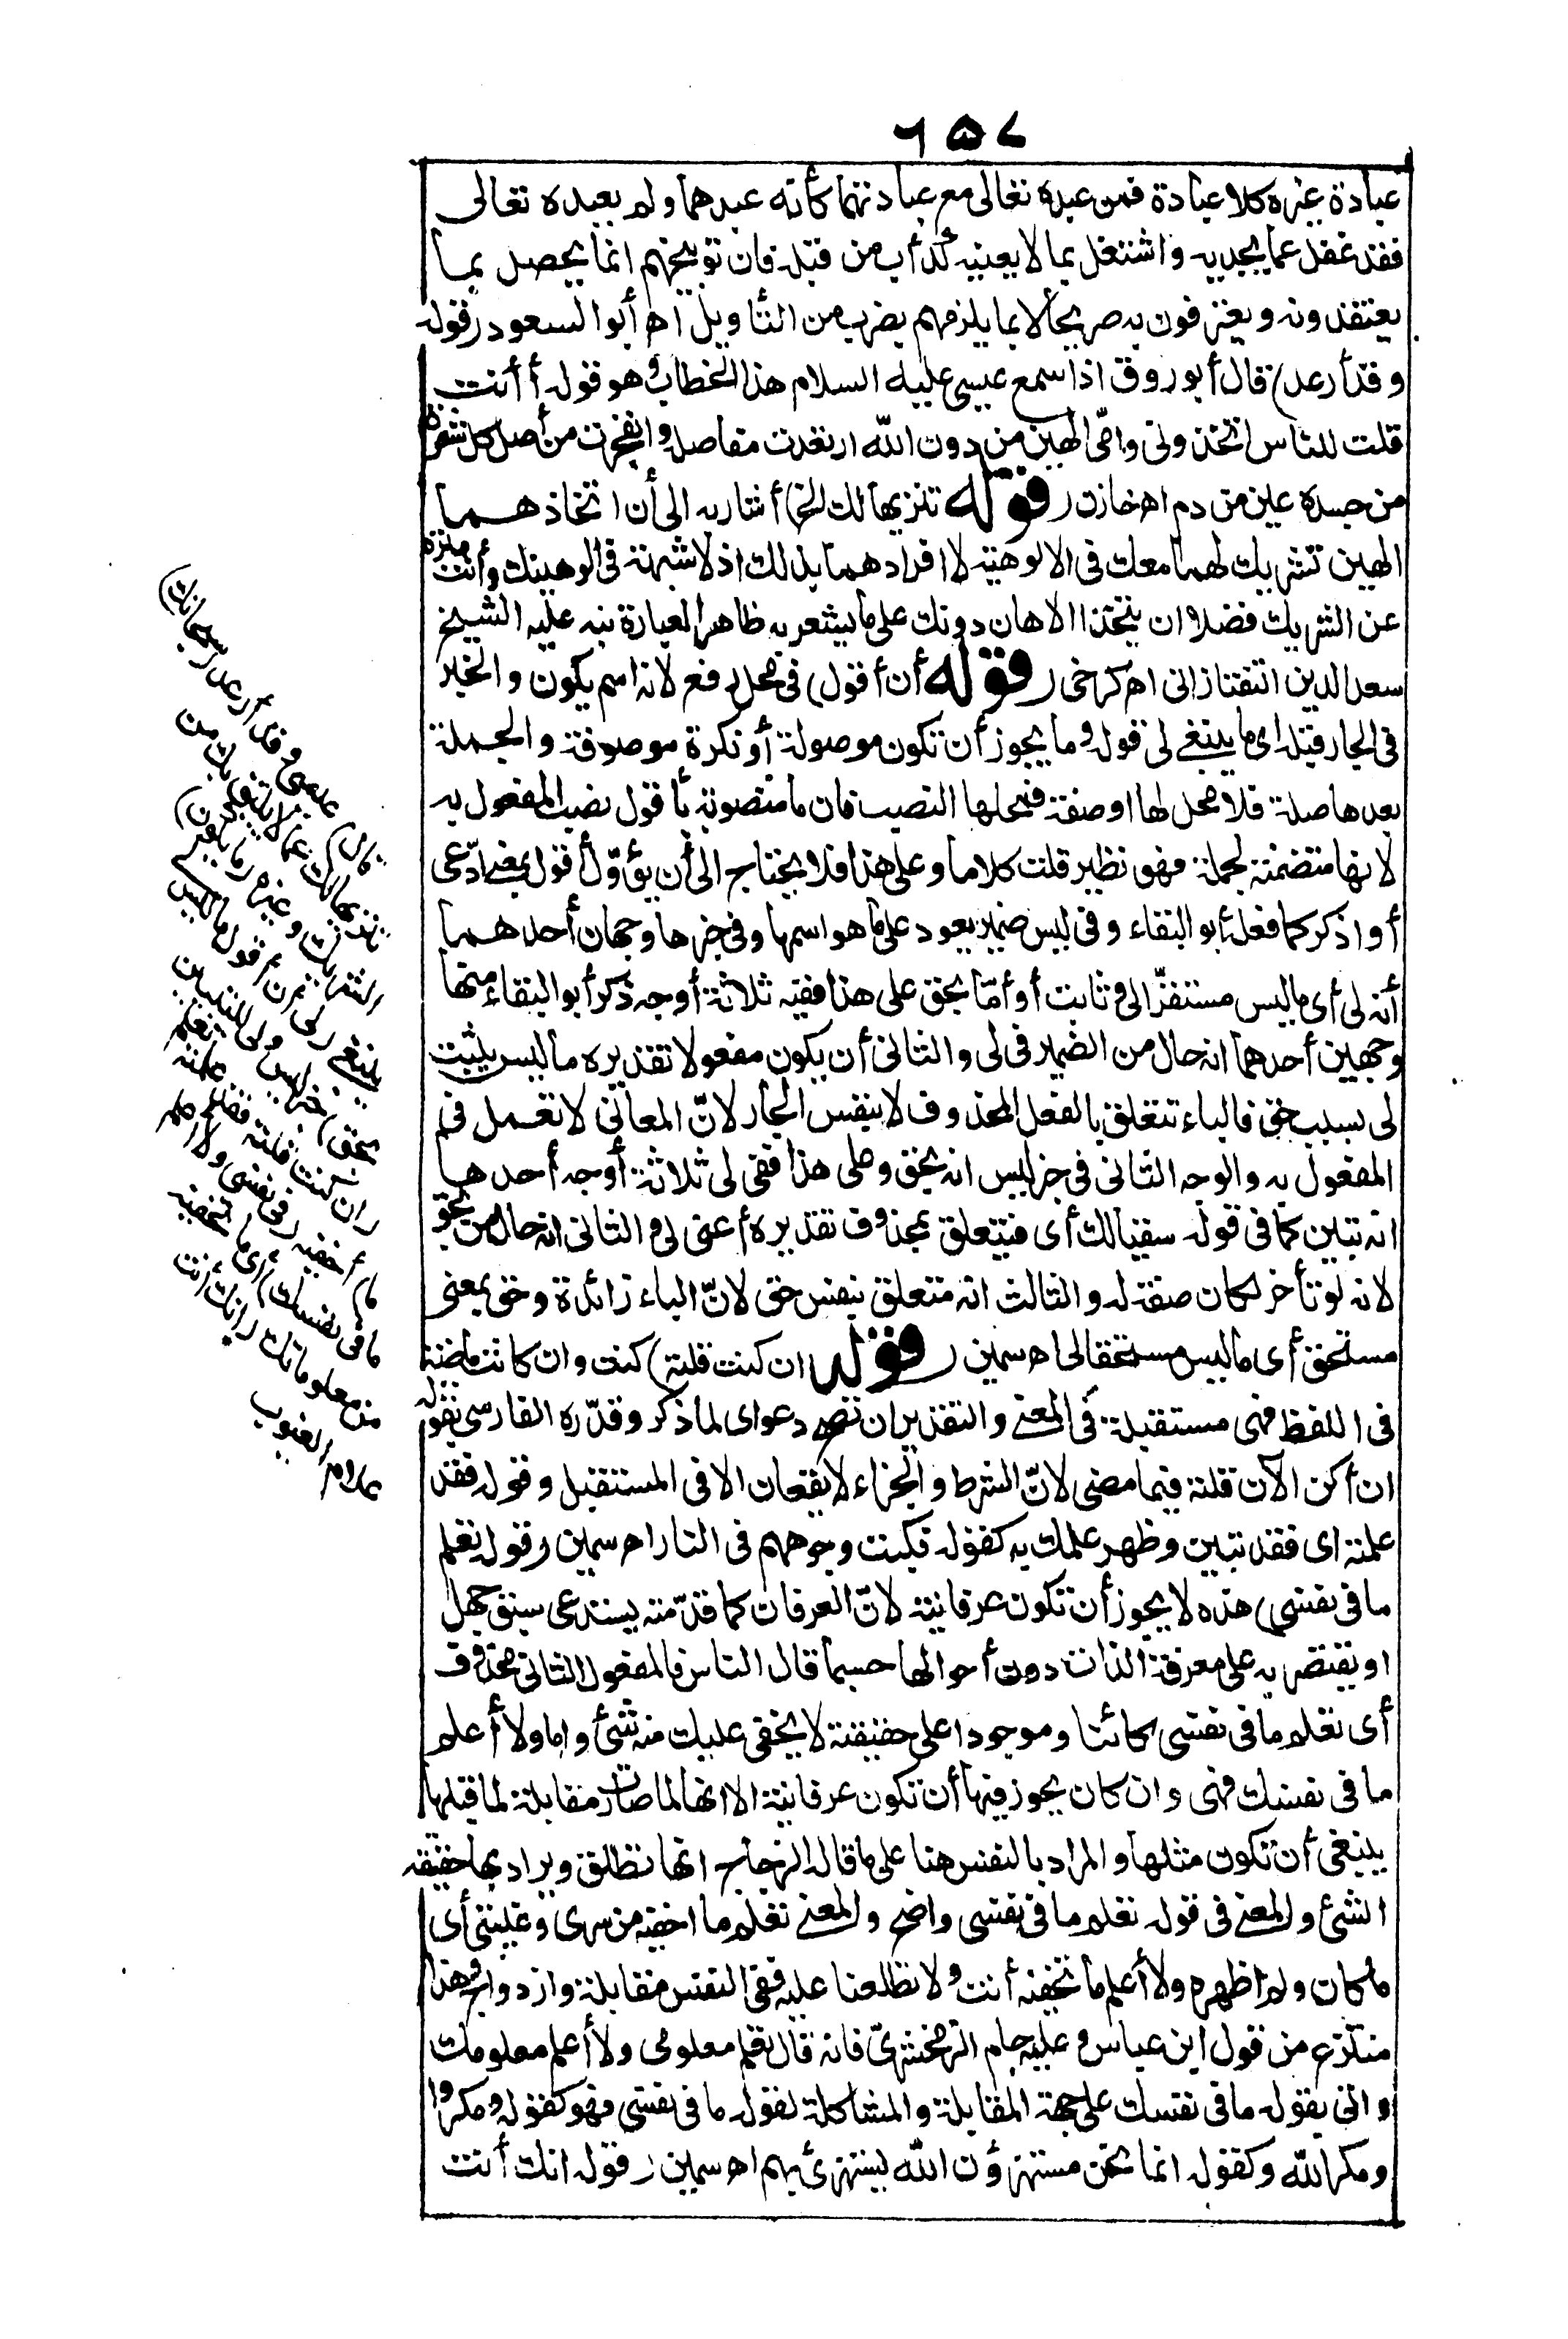 ٦٥٧
عبادة غيره كلا عبادة فمن عبده تعالى مع عبادتهما كأنه عبدهما ولم يعبده تعالى
فقد غفل عما يجديه واشتغل بما لا يعنيه كدأب من قبله فان توبيخهم انما يحصل بما
يعتقدونه ويعترفون به صريحا لا بما يلزمهم بضرب من التأويل اه أبو السعود (قوله
وقد أرعد) قال أبو روق اذا سمع عيسى عليه السلام هذا الخطاب وهو قوله أأنت
قلت للناس اتخذوني وامّي الهين من دون الله ارتعدت مفاصله وانفجرت من أصل كل شعرة
من جسده عين من دم اه خازن (قوله تنزيها لك الخ) أشار به الى أن اتخاذهما
الهين تشريك لهما معك في الالوهية لا افرادهما بذلك اذ لا شبهة في الوهيتك وأنت منزه
عن الشريك فضلا ان يتخذ الاهان دونك على ما يشعر به ظاهر العبارة نبه عليه الشيخ
سعد الدين التفتازاني اه كرخي (قوله أن أقول) في محل رفع لانه اسم يكون والخبر
في الجار قبله اى ما ينبغي لي قول وما يجوز أن تكون موصولة أو نكرة موصوفة والجملة
بعدها صلة فلا محل لها او صفة فمحلها النصب فان ما منصوبة بأقول نصب المفعول به
لانها متضمنة لجملة فهو نظير قلت كلاما وعلى هذا فلا يحتاج الى أن يؤوّل أقول بمعنى ادّعى
أو اذكر كما فعله أبو البقاء وفي ليس ضمير يعود على ما هو اسمها وفي خبرها وجهان أحدهما
أنه لي أى ما ليس مستقرّا لي وثابتا وأمّا بحق على هذا ففيه ثلاثة أوجه ذكر أبو البقاء منها
وجهين أحدهما انه حال من الضمير في لي والثاني أن يكون مفعولا تقديره ما ليس يثبت
لي بسبب حق فالباء تتعلق بالفعل المحذوف لا بنفس الجار لانّ المعاني لا تعمل في
المفعول به والوجه الثاني في خبر ليس انه بحق وعلى هذا ففي لي ثلاثة أوجه أحدها
انه تبيين كما في قوله سقيا لك أى فيتعلق بمحذوف تقديره أعنى لي والثاني انه حال من بحق
لانه لو تأخر لكان صفة له والثالث انه متعلق بنفس حق لانّ الباء زائدة وحق بمعنى
مستحق أى ما ليس مستحقا لي اه سمين (قوله ان كنت قلته) كنت وان كانت ماضية
في اللفظ فهي مستقبلة في المعنى والتقدير ان تصح دعواى لما ذكر وقدّره الفارسي بقوله
ان أكن الآن قلته فيما مضى لانّ الشرط والجزاء لا يقعان الا في المستقبل وقوله فقد
علمته اى فقد تبين وظهر علمك به كقوله فكبت وجوههم في النار اه سمين (قوله تعلم
ما في نفسي) هذه لا يجوز أن تكون عرفانية لانّ العرفان كما قدّمته يستدعى سبق جهل
او يقتصر به على معرفة الذات دون أحوالها حسبما قال الناس فالمفعول الثاني محذوف
أى تعلم ما في نفسي كائنا وموجودا على حقيقته لا يخفى عليك منه شئ واما ولا أعلم
ما في نفسك فهي وان كان يجوز فيها أن تكون عرفانية الا انها لما صارت مقابلة لما قبلها
ينبغي أن تكون مثلها والمراد بالنفس هنا على ما قاله الزجاج انها تطلق ويراد بها حقيقة
الشئ والمعنى في قوله تعلم ما في نفسي واضح والمعنى تعلم ما اخفيه من سرى وغيبتي أى
ما كان ولم اظهره ولا أعلم ما تخفيه أنت ولا تطلعنا عليه ففي النفس مقابلة وازدواج وهذا
منتزع من قول ابن عباس وعليه حام الزمخشرىّ فانه قال تعلم معلومي ولا أعلم معلومك
واتى بقوله ما في نفسك على جهة المقابلة والمشاكلة لقوله ما في نفسي فهو كقوله ومكروا
ومكر الله وكقوله انما نحن مستهزؤن الله يستهزئ بهم اه سمين (قوله انك أنت
قال) عيسى وقد أرعد (سبحانك)
تنزيها لك عما لا يليق بك من
الشريك وغيره (ما يكون)
ينبغي (لي أن أقول ما ليس
لي بحق) خبر ليس ولي للتبيين
(ان كنت قلته فقد علمته تعلم
ما) أخفيه (في نفسي ولا أعلم
ما في نفسك) أى ما تخفيه
من معلوماتك (انك أنت
علام الغيوب